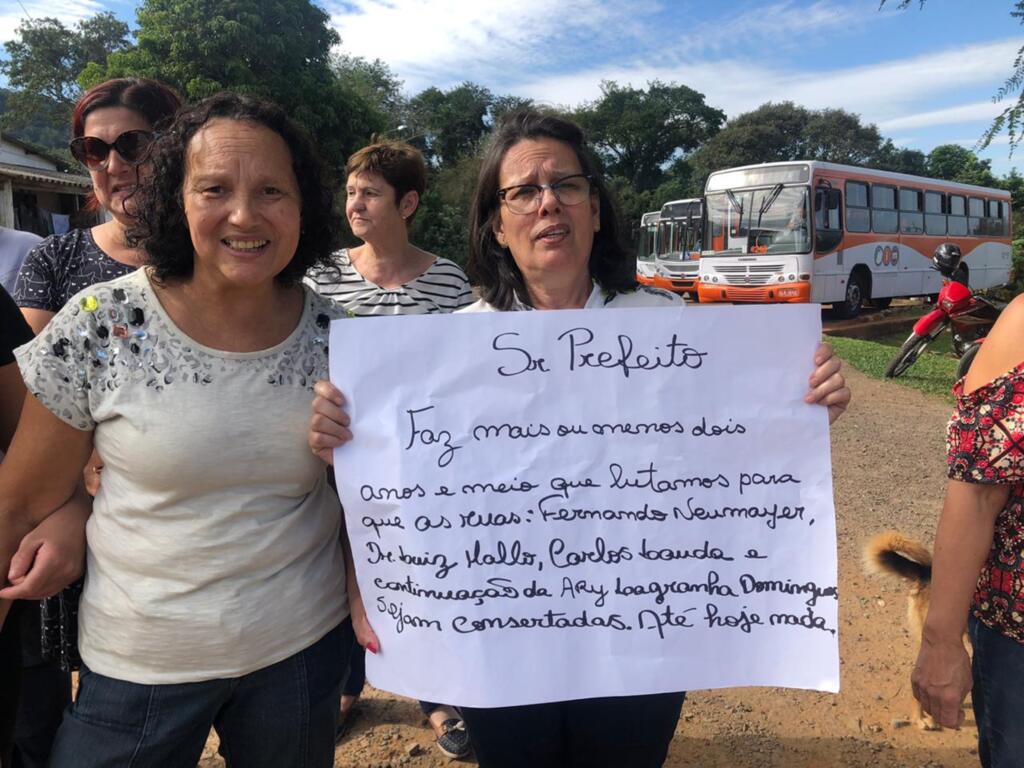 Sr Prefeito
Faz mais ou menos dois
anos e meio que lutamos para
que as ruas: Fernando Neumayer,
Dr. Luiz Mallo, Carlos Lauda e
continuação da Ary Lagranha Domingues
Sejam consertadas. Até hoje nada.